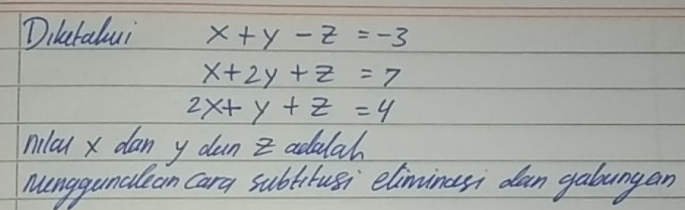 Diketahui x + y - z = -3
x + 2y + z = 7
2x + y + z = 4
nilai x dan y dan z adalah
menggunakan cara subtitusi eliminasi dan gabungan